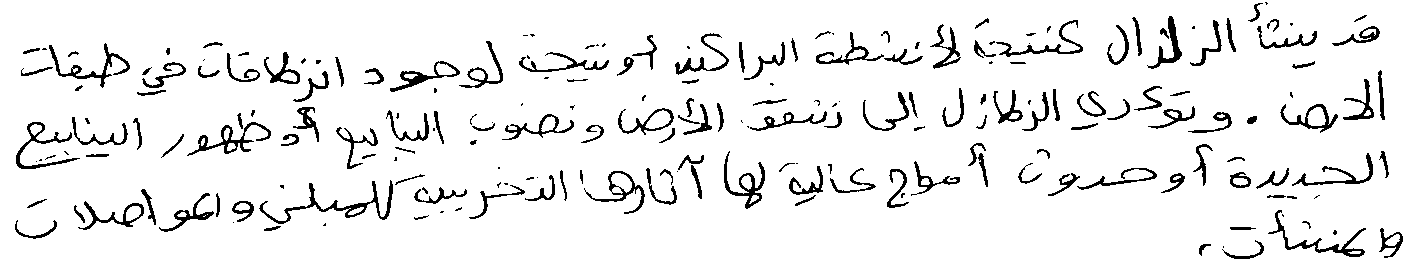 قد ينشأ الزلزال كنتيجة لأنشطة البراكين أو نتيجة لوجود انزلاقات في طبقات
الارض . وتؤدي الزلازل إلى تشقق الأرض ونضوب الينابيع أو ظهور الينابيع
الجديدة أو حدوث أمواج عالية لها آثارها التخريبية للمباني والمواصلات
والمنشأت .